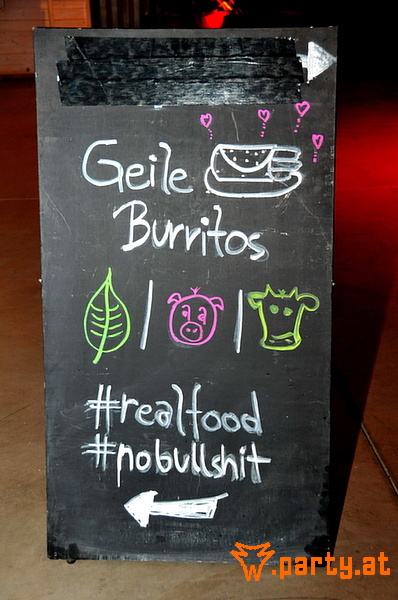 Geile
Burritos
#realfood
#nobullshit
W.party.at